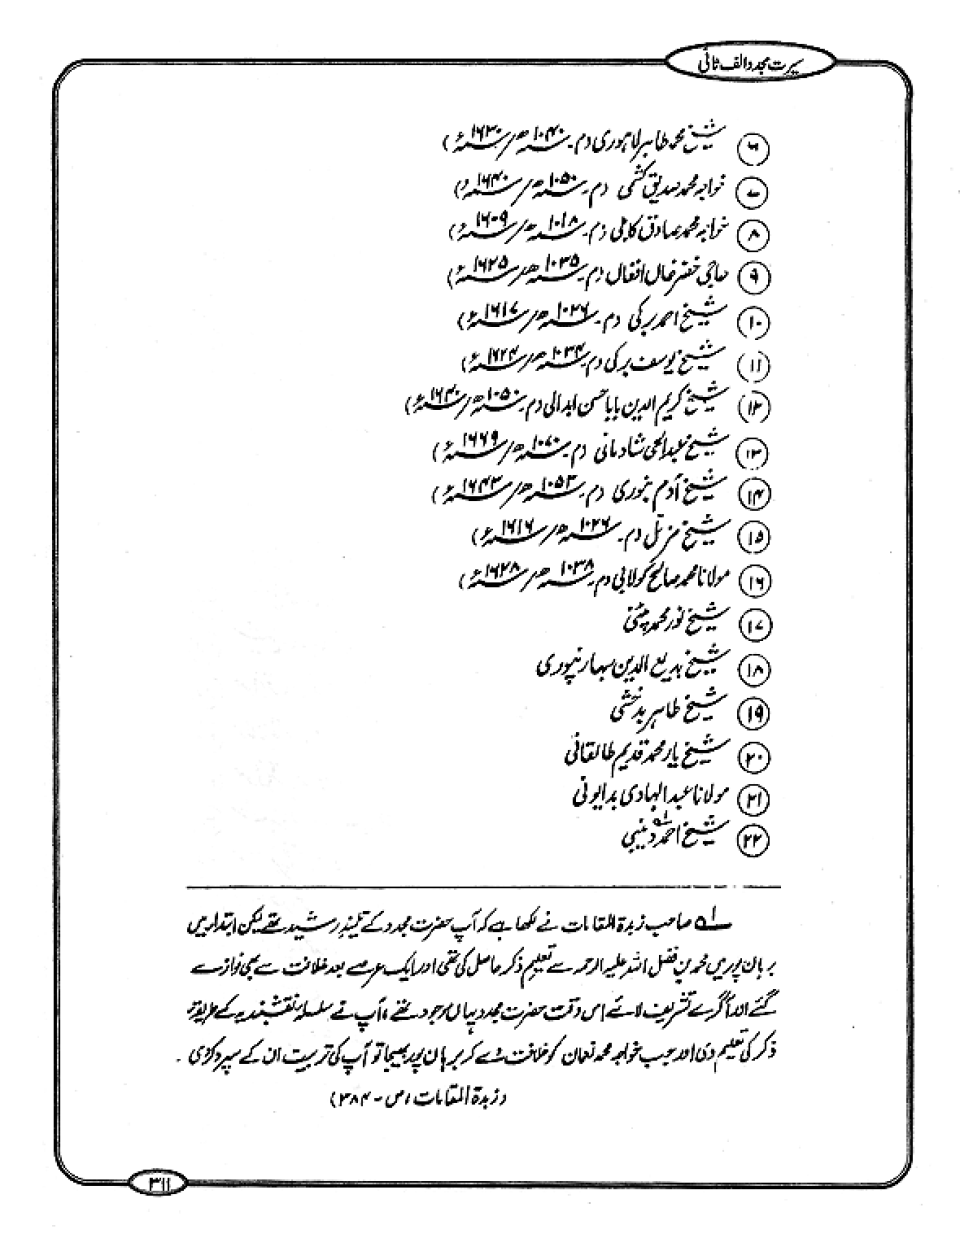 سیرت مجدد الف ثانی
۶ شیخ محمد طاہر لاہوری (م۔ ۱۰۴۰ھ/ ۱۶۳۰ء)
۷ خواجہ محمد صدیق کشمی (م۔ ۱۰۵۰ھ/ ۱۶۴۰ء)
۸ خواجہ محمد صادق کابلی (م۔ ۱۰۱۸ھ/ ۱۶۰۹ء)
۹ حاجی خضر خاں افغان (م۔ ۱۰۳۵ھ/ ۱۶۲۵ء)
۱۰ شیخ احمد برکی (م۔ ۱۰۲۶ھ/ ۱۶۱۷ء)
۱۱ شیخ یوسف برکی (م۔ ۱۰۳۴ھ/ ۱۶۲۴ء)
۱۲ شیخ کریم الدین بابا حسن ابدالی (م۔ ۱۰۵۰ھ/ ۱۶۴۰ء)
۱۳ شیخ عبدالحی شادمانی (م۔ ۱۰۷۰ھ/ ۱۶۶۹ء)
۱۴ شیخ آدم بنوری (م۔ ۱۰۵۳ھ/ ۱۶۴۳ء)
۱۵ شیخ مزمل (م۔ ۱۰۲۶ھ/ ۱۶۱۶ء)
۱۶ مولانا محمد صالح کولابی (م۔ ۱۰۳۸ھ/ ۱۶۲۸ء)
۱۷ شیخ نور محمد پٹنی
۱۸ شیخ بدیع الدین سہارنپوری
۱۹ شیخ طاہر بدخشی
۲۰ شیخ یار محمد قدیم طالقانی
۲۱ مولانا عبدالہادی بدایونی
۲۲ شیخ احمد دیبنی ۱ے
۱ے صاحب زبدۃ المقامات نے لکھا ہے کہ آپ حضرت مجدد کے تلمیذ رشید تھے لیکن ابتدا میں
برہان پور میں محمد بن فضل اللہ علیہ الرحمہ سے تعلیم ذکر حاصل کی تھی اور ایک عرصے بعد خلافت سے بھی نوازے
گئے اور آگرے تشریف لائے اس وقت حضرت مجدد یہاں موجود تھے، آپ نے سلسلہ نقشبندیہ کے طریقۂ
ذکر کی تعلیم دی اور جب خواجہ محمد نعمان کو خلافت دے کر برہان پور بھیجا تو آپ کی تربیت ان کے سپرد کر دی۔
(زبدۃ المقامات، ص۔ ۳۸۴)
۳۱۱